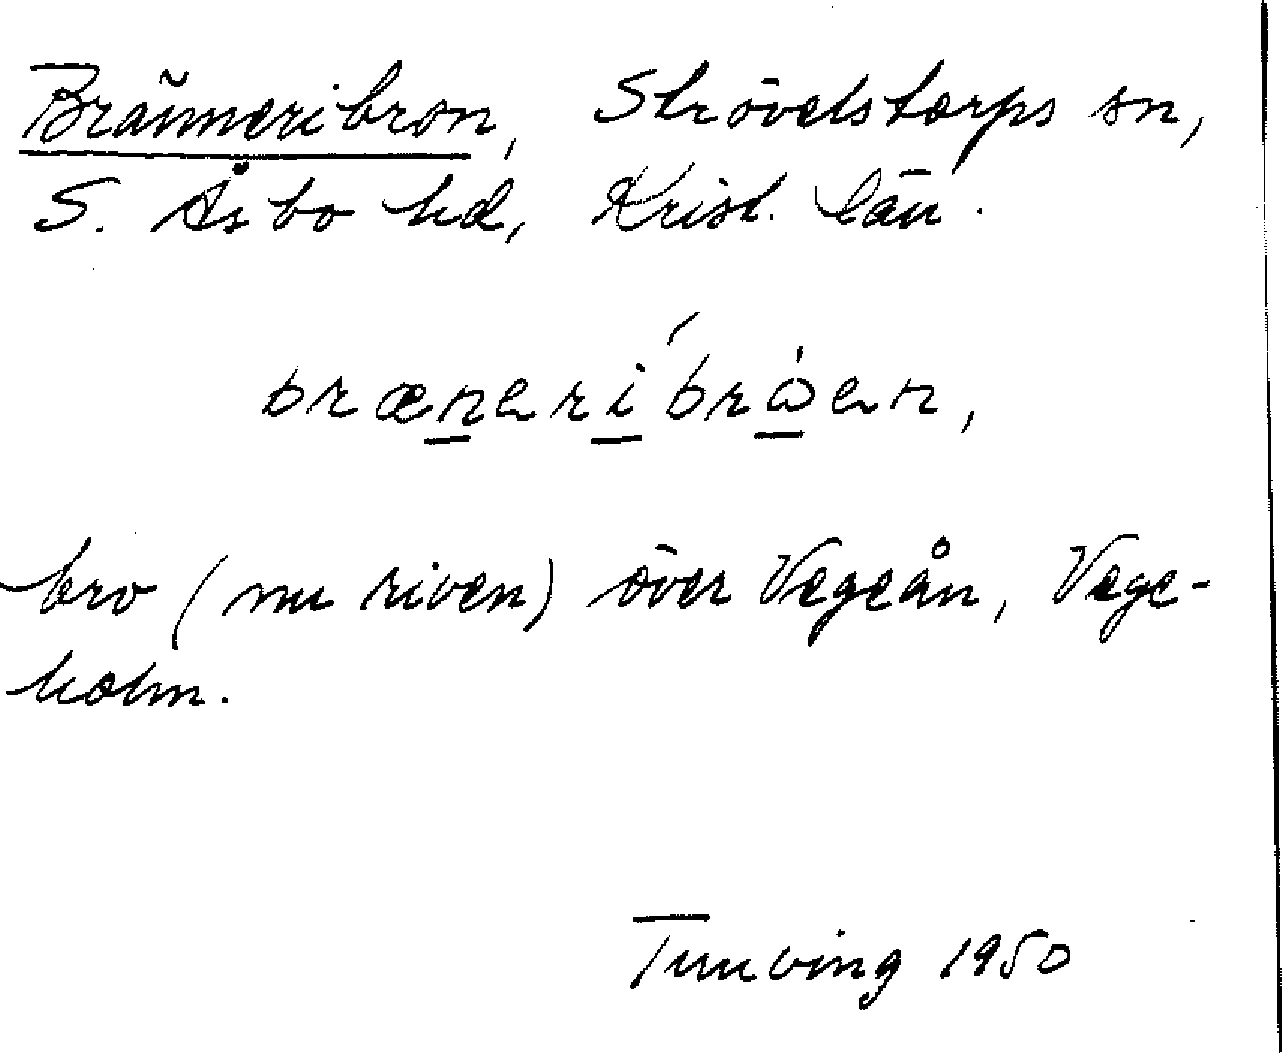 Bränneribron, Strövelstorps sn,
S. Åsbo hd, Krist. län.
brænerí bròen,
bro (nu riven) över Vegeån, Vege-
holm.
Tuneving 1950